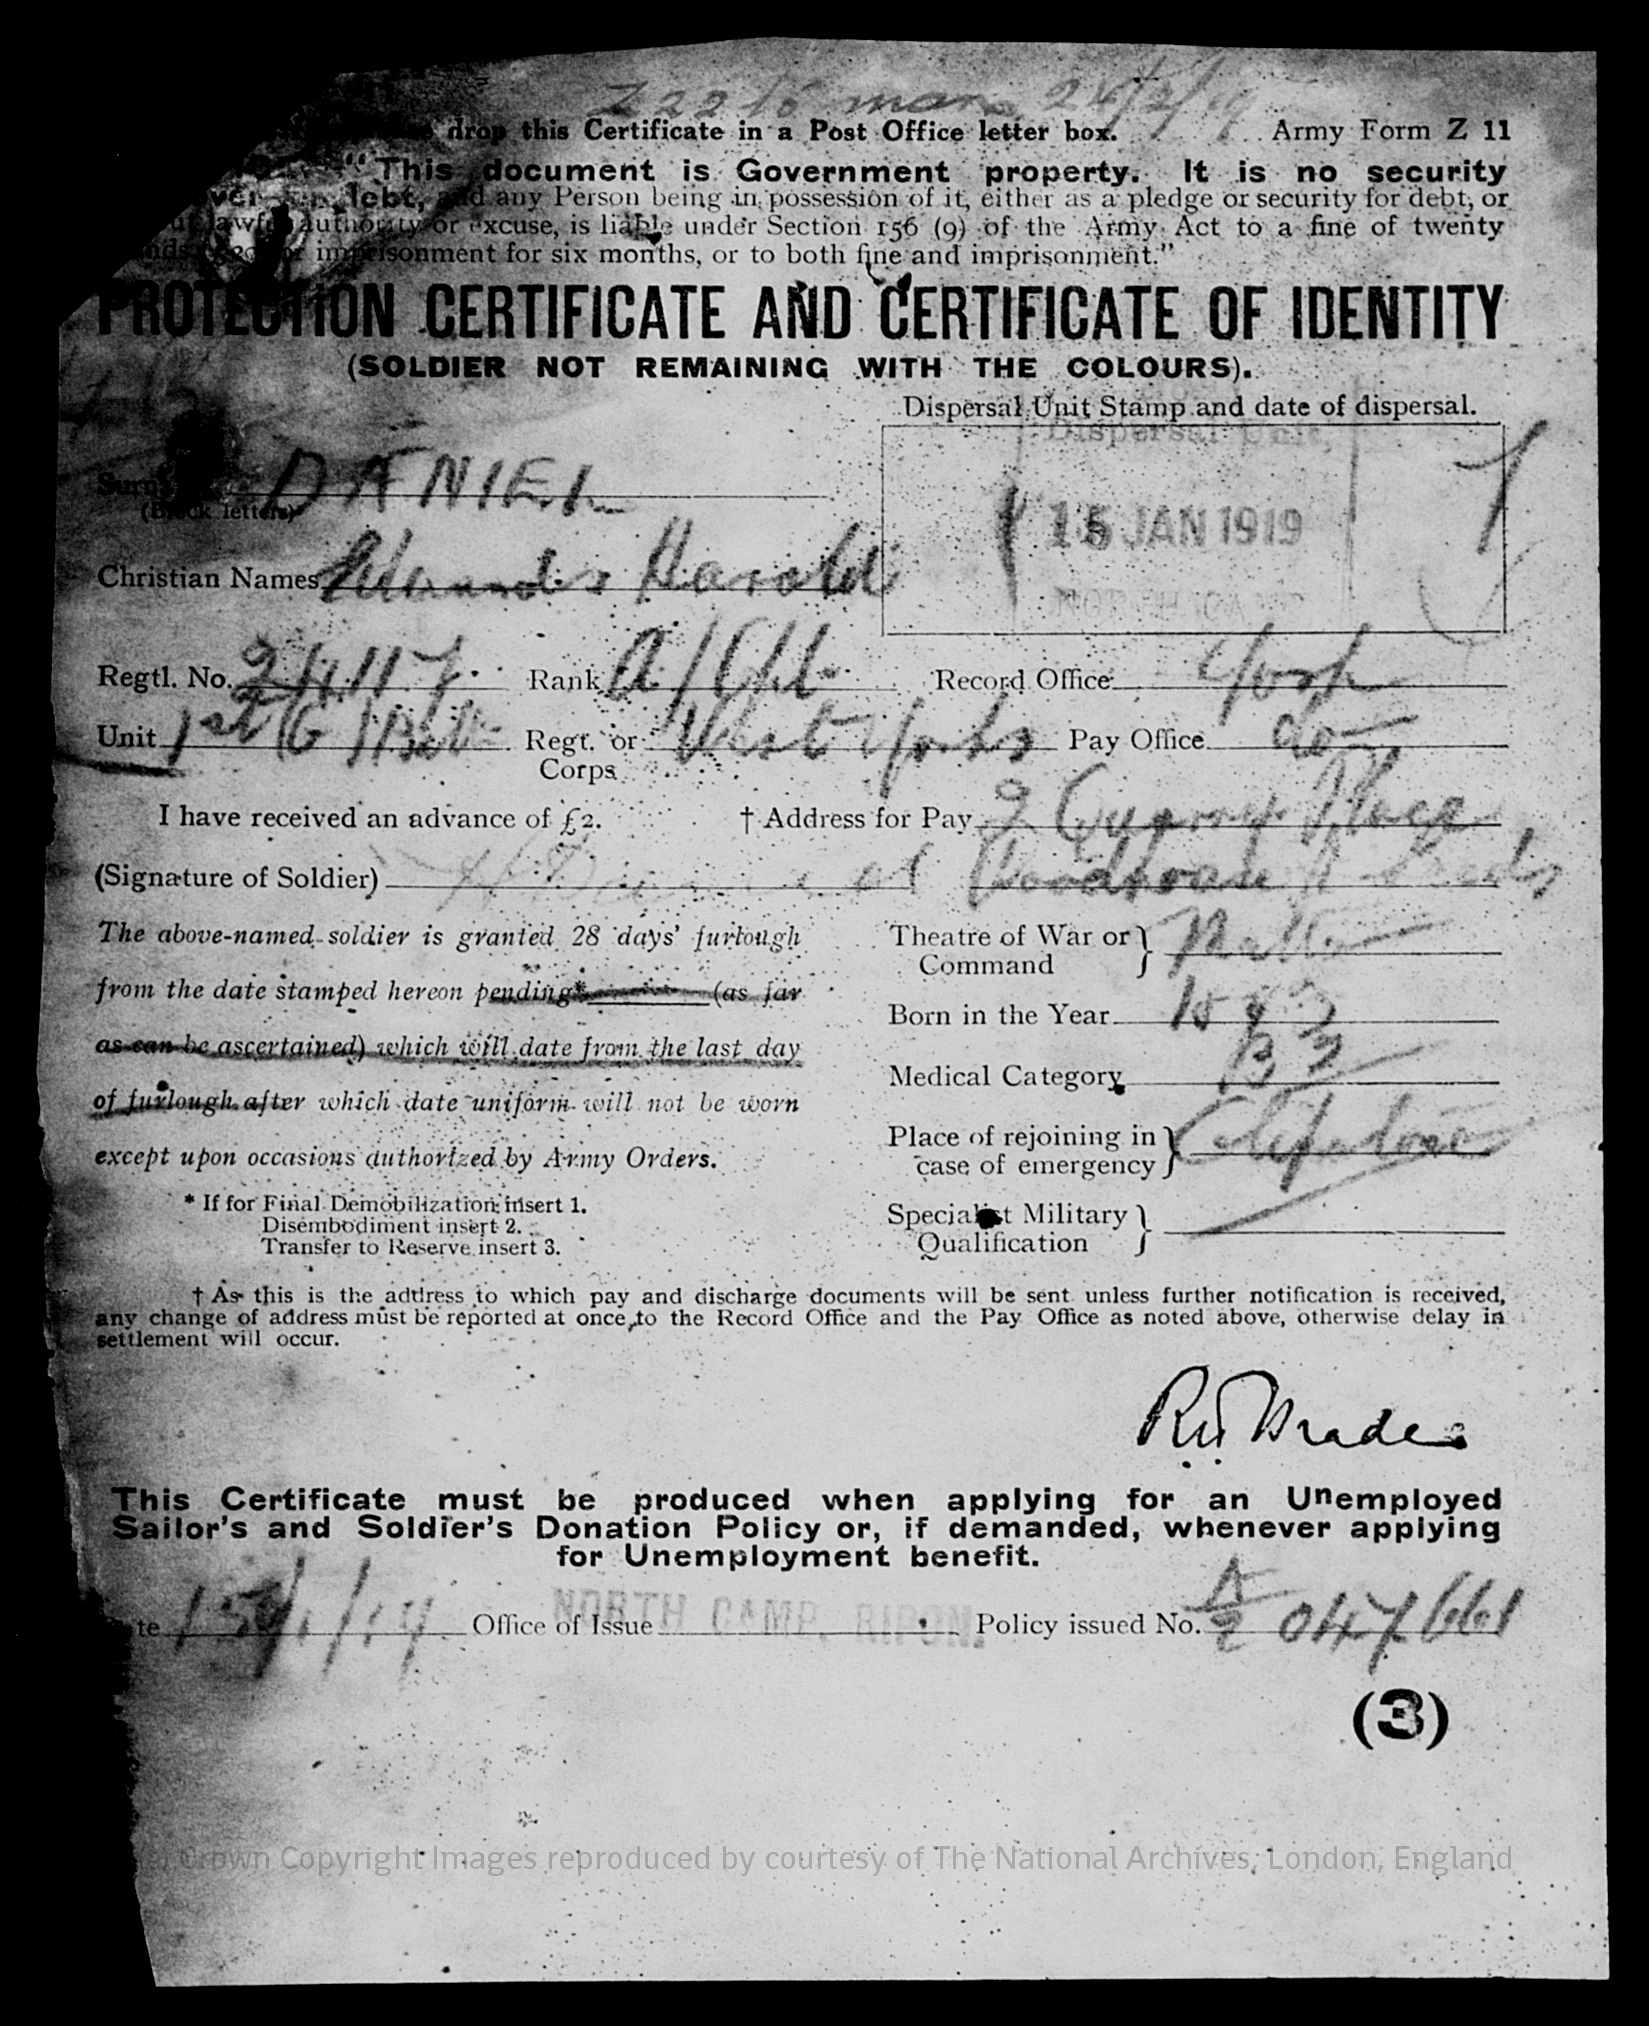 Z22 16 man 24/2/19
drop this Certificate in a Post Office letter box. Army Form Z 11
"This document is Government property. It is no security
debt, and any Person being in possession of it, either as a pledge or security for debt, or
lawful authority or excuse, is liable under Section 156 (9) of the Army Act to a fine of twenty
imprisonment for six months, or to both fine and imprisonment."
PROTECTION CERTIFICATE AND CERTIFICATE OF IDENTITY
(SOLDIER NOT REMAINING WITH THE COLOURS).
Dispersal Unit Stamp and date of dispersal.
Dispersal Unit,
Surname DANIEL
(Block letters)
15 JAN 1919
Christian Names Harold
Regtl. No. 24117 Rank A/Cpl. Record Office York
Unit 1st G Bn Regt. or West Yorks Pay Office do
Corps
I have received an advance of £2. † Address for Pay 2 Place
(Signature of Soldier) H Daniel Woodhouse Leeds
The above-named soldier is granted 28 days' furlough Theatre of War or Malta
Command
from the date stamped hereon pending* (as far
Born in the Year 1883
as can be ascertained) which will date from the last day
Medical Category B 2
of furlough after which date uniform will not be worn
Place of rejoining in Clipstone
except upon occasions authorized by Army Orders. case of emergency
* If for Final Demobilization insert 1. Specialist Military
Disembodiment insert 2. Qualification
Transfer to Reserve insert 3.
† As this is the address to which pay and discharge documents will be sent unless further notification is received,
any change of address must be reported at once to the Record Office and the Pay Office as noted above, otherwise delay in
settlement will occur.
This Certificate must be produced when applying for an Unemployed
Sailor's and Soldier's Donation Policy or, if demanded, whenever applying
for Unemployment benefit.
15/1/19 Office of Issue NORTH CAMP, RIPON. Policy issued No. A/2 047661
(3)
Crown Copyright Images reproduced by courtesy of The National Archives, London, England